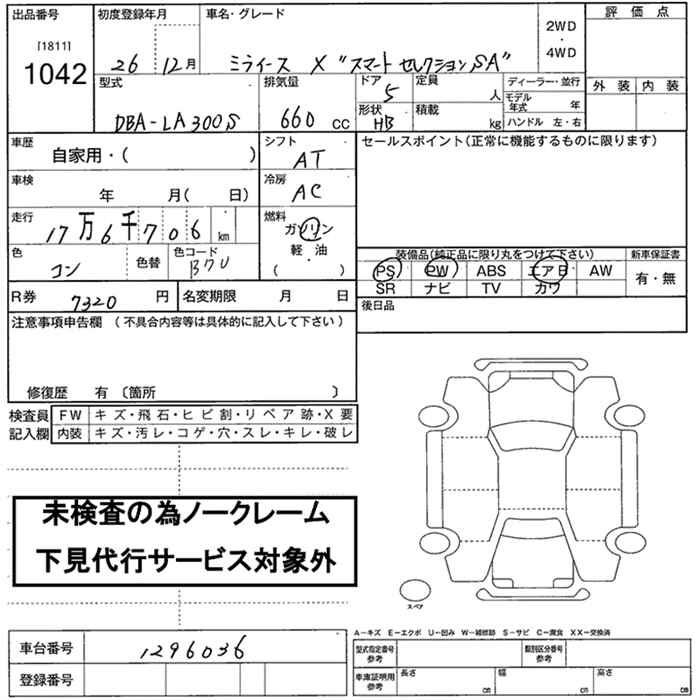 出品番号
[1811]
1042
初度登録年月
26 12月
車名・グレード
ミライース X "スマートセレクションSA"
2WD
・
4WD
評価点
外装 内装
型式
DBA-LA300S
排気量
660 cc
ドア
5
形状
HB
定員
人
積載
kg
ディーラー・並行
モデル年式 年
ハンドル 左・右
車歴
自家用・( )
シフト
AT
セールスポイント(正常に機能するものに限ります)
車検
年 月( 日)
冷房
AC
走行
17万6千706 km
燃料
ガソリン
軽・油
( )
色
コン
色替
色コード
B7U
装備品(純正品に限り丸をつけて下さい)
新車保証書
PS PW ABS エアB AW
SR ナビ TV カワ
有・無
R券 7320 円
名変期限 月 日
後日品
注意事項申告欄 (不具合内容等は具体的に記入して下さい)
修復歴 有 〔箇所 〕
検査員
記入欄
FW キズ・飛石・ヒビ割・リペア跡・X要
内装 キズ・汚レ・コゲ・穴・スレ・キレ・破レ
未検査の為ノークレーム
下見代行サービス対象外
スペア
A―キズ E―エクボ U―凹み W―補修跡 S―サビ C―腐食 XX―交換済
車台番号
1296036
登録番号
型式指定番号
参考
類別区分番号
参考
車庫証明用
参考
長さ cm
幅 cm
高さ cm